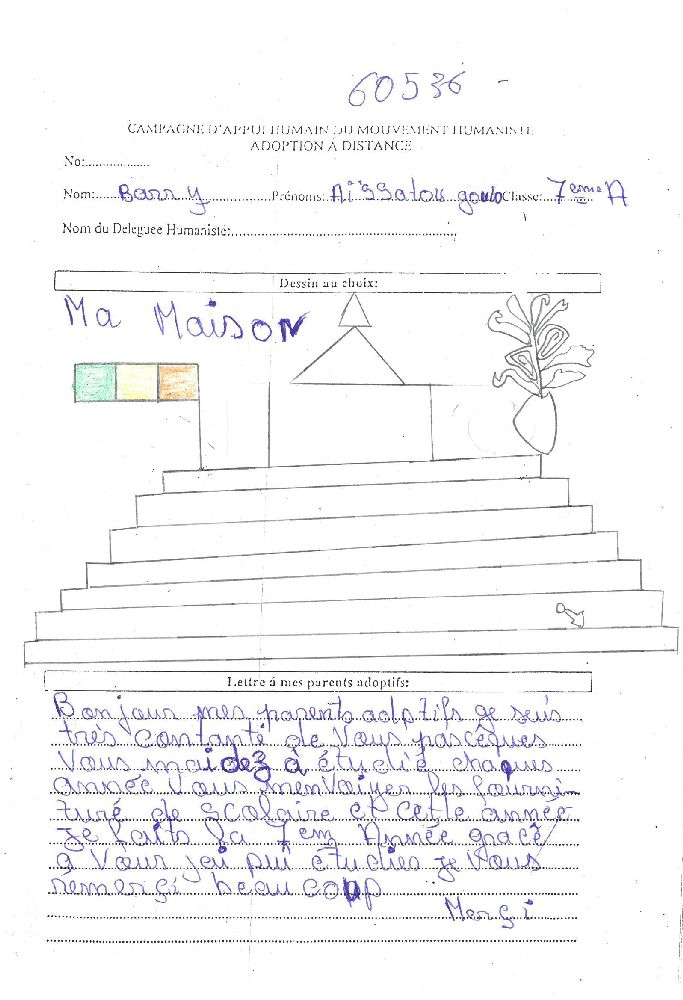 60536
CAMPAGNE D'APPUI HUMAIN DU MOUVEMENT HUMANISTE
ADOPTION À DISTANCE
No:
Nom: Barry Prénoms: Aïssatou Classe: 7eme A
Nom du Deleguee Humaniste:
Dessin au choix:
Ma Maison
Lettre á mes parents adoptifs:
Bonjour mes parents adptifs je suis
très contante de Vous pascêques
Vous maidez à étudié chaques
année Vous menvoiyer les fourni-
turé de scolaire et cette année
je faits la 7em Année gracê
à Vœur jai puî étudies je Vous
remerçi beaucoup
Merçi